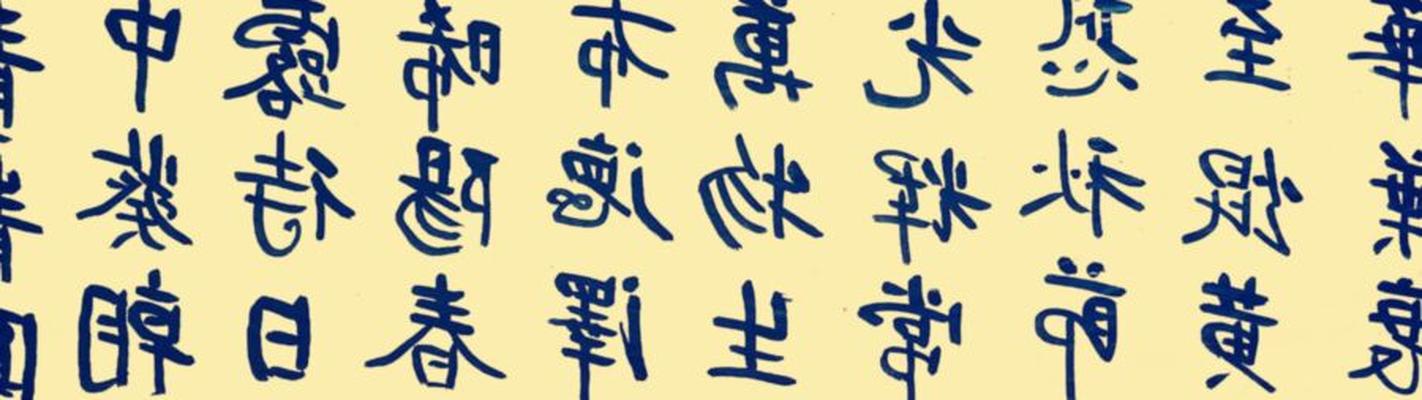 青青園
中葵朝
露待日
晞陽春
布德澤
萬物生
光輝常
恐秋節
至焜黃
華葉衰